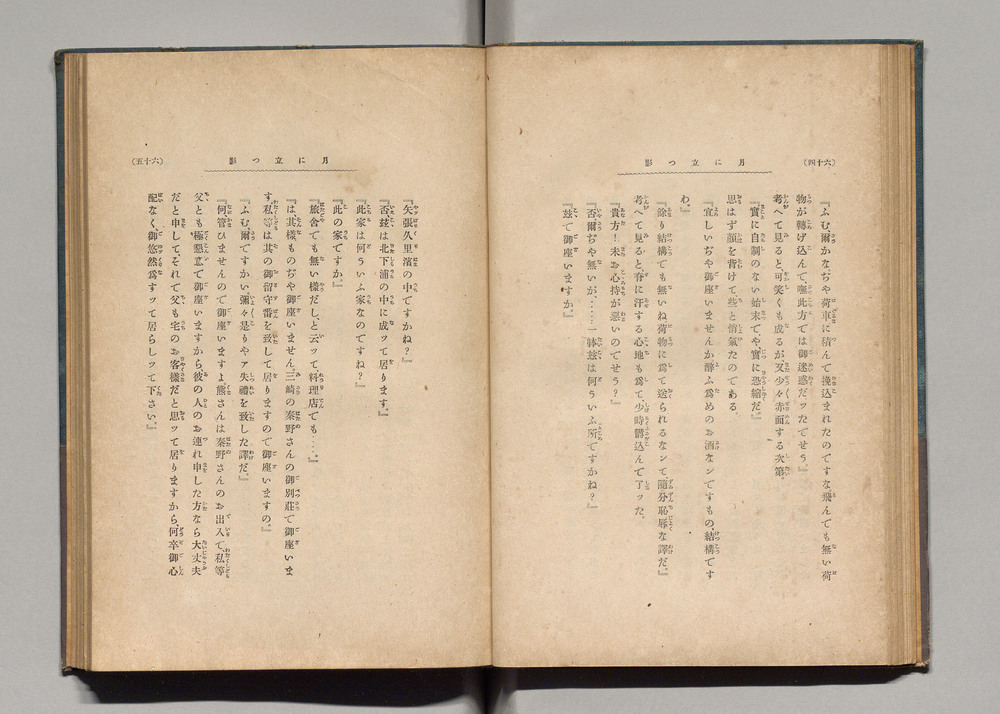 (六十四)
月に立つ影
『ふむ爾かな、ぢや荷車に積んで擔込まれたのですな飛んでも無い荷
物が轉げ込んで、嘸此方では御迷惑だッたでせう。』
考へて見ると、可笑くも成るが又少々赤面する次第。
『實に自制のない始末で、や、實に恐縮だ。』
思はず顔を背けて些と悄氣たのである。
『宜しいぢや御座いませんか醉ふ爲めのお酒なンですもの、結構です
わ。』
『餘り結構でも無いね荷物に爲て送られるなンて、隨分恥辱な譯だ。』
考へて見ると、脊に汗する心地も爲て少時欝込んで了ッた。
『貴方！未お心持が惡いのでせう？』
『否爾ぢや無いが、……一躰玆は何ういふ所ですかね？』
『玆で御座いますか。』
(六十五)
月に立つ影
『矢張久里濱の中ですかね？』
『否玆は北下浦の中に成ッて居ります。』
『此家は何ういふ家なのですね？』
『此の家ですか。』
『旅舍でも無い樣だし、と云ッて料理店でも……。』
『は其樣ものぢや御座いません、三崎の秦野さんの御別莊で御座いま
す、私等は其の御留守番を致して居りますので御座いますの。』
『ふむ爾ですかい、彌々是りやァ失禮を致した譯だ。』
『何管ひませんので御座いますよ熊さんは秦野さんのお出入で、私等
父とも極懇意で御座いますから、彼の人のお連れ申した方なら大丈夫
だと申して、それで父も宅のお客樣だと思ッて居りますから、何卒御心
配なく、御悠然爲すッて居らしッて下さい。』